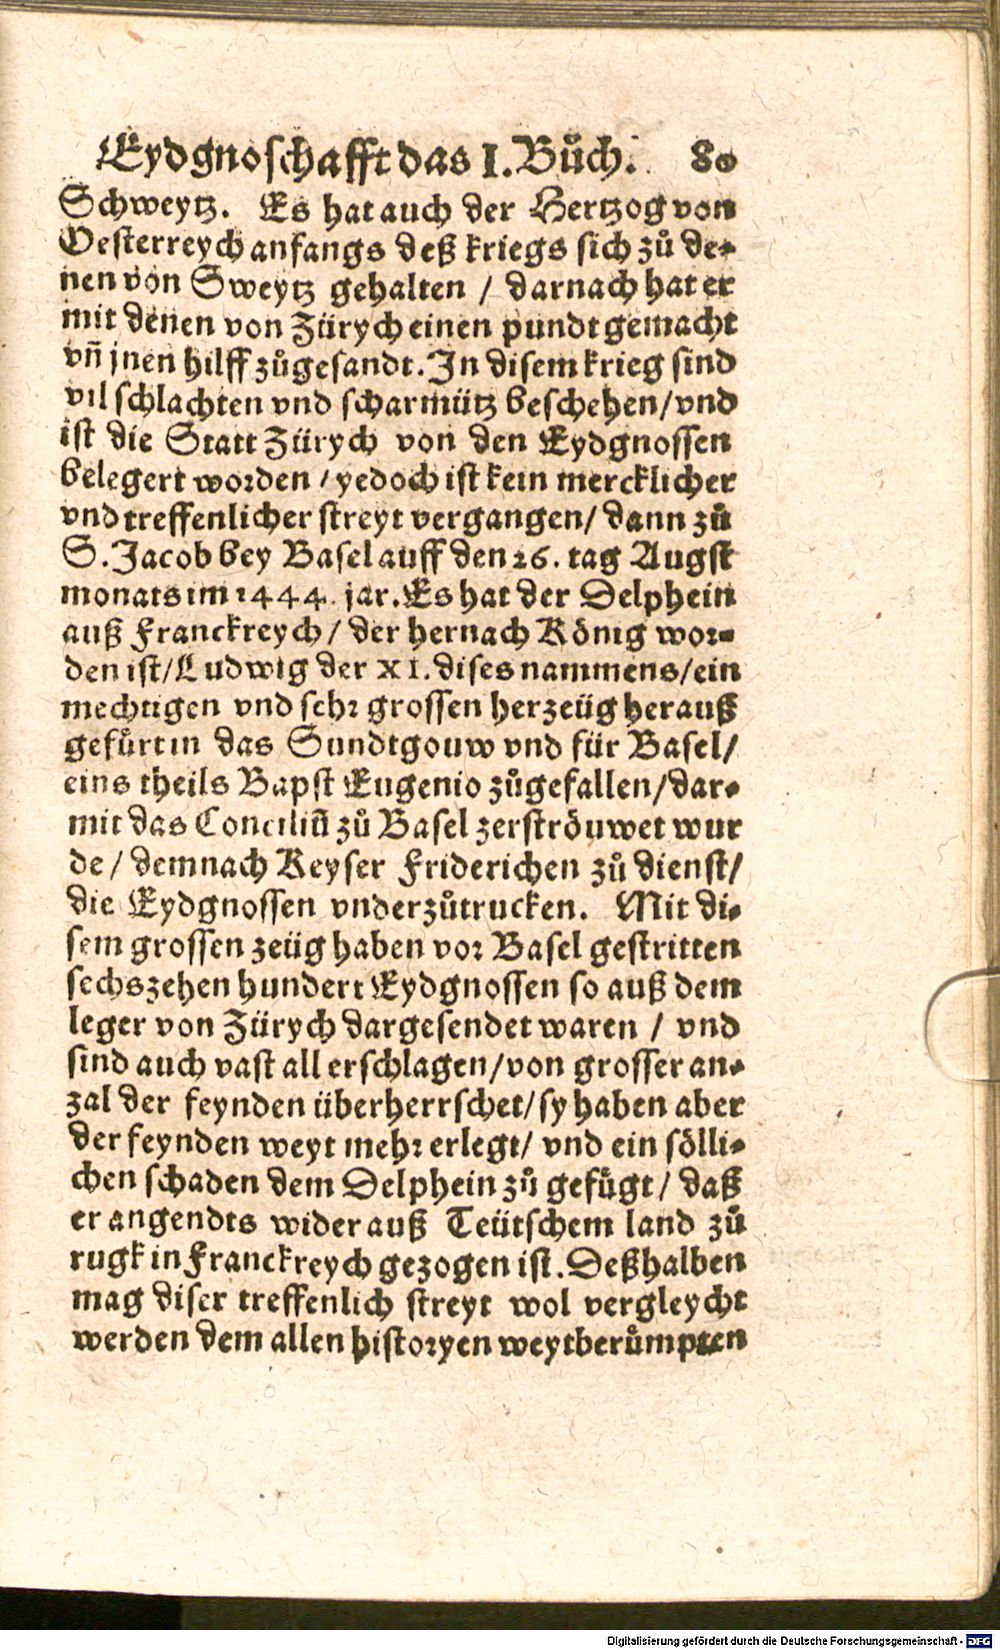 Eydgnoschafft das I. Bůch. 80
Schweytz. Es hat auch der Hertzog von
Oesterreych anfangs deß kriegs sich zů de-
nen von Sweytz gehalten / darnach hat er
mit denen von Zürych einen pundt gemacht
vñ jnen hilff zůgesandt. In disem krieg sind
vil schlachten vnd scharmütz beschehen/vnd
ist die Statt Zürych von den Eydgnossen
belegert worden / yedoch ist kein mercklicher
vnd treffenlicher streyt vergangen/ dann zů
S. Jacob bey Basel auff den 26. tag Augst
monats im 1444. jar. Es hat der Delphein
auß Franckreych/ der hernach König wor-
den ist/Ludwig der XI. dises nammens/ein
mechtigen vnd sehr grossen herzeüg herauß
gefürt in das Sundtgouw vnd für Basel/
eins theils Bapst Eugenio zůgefallen/dar-
mit das Conciliũ zů Basel zerströuwet wur
de/ demnach Keyser Friderichen zů dienst/
die Eydgnossen vnderzůtrucken. Mit di-
sem grossen zeüg haben vor Basel gestritten
sechszehen hundert Eydgnossen so auß dem
leger von Zürych dargesendet waren / vnd
sind auch vast all erschlagen/von grosser an-
zal der feynden überherrschet/sy haben aber
der feynden weyt mehr erlegt/ vnd ein sölli-
chen schaden dem Delphein zů gefügt/ daß
er angendts wider auß Teütschem land zů
rugk in Franckreych gezogen ist. Deßhalben
mag diser treffenlich streyt wol vergleycht
werden dem allen historyen weytberůmpten
Digitalisierung gefördert durch die Deutsche Forschungsgemeinschaft - DFG